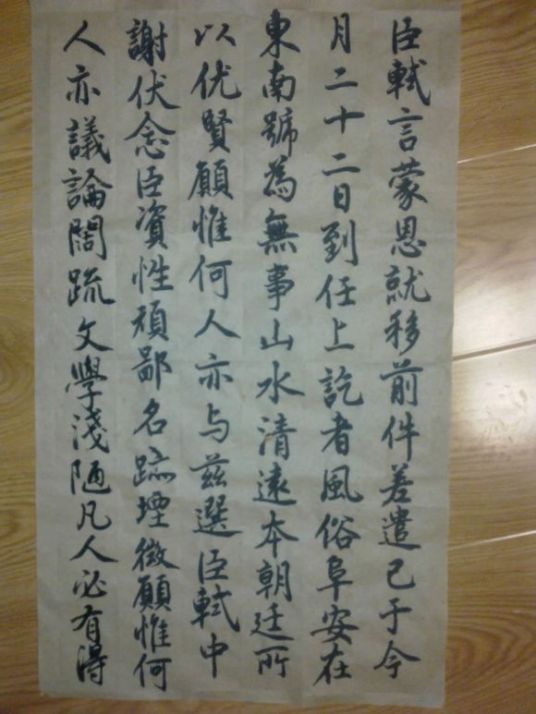 臣軾言蒙恩就移前件差遣已于今
月二十二日到任上訖者風俗阜安在
東南號為無事山水清遠本朝廷所
以优賢顧惟何人亦与兹選臣軾中
謝伏念臣資性頑鄙名跡堙微顧惟何
人亦議論闊疏文學淺陋凡人必有得